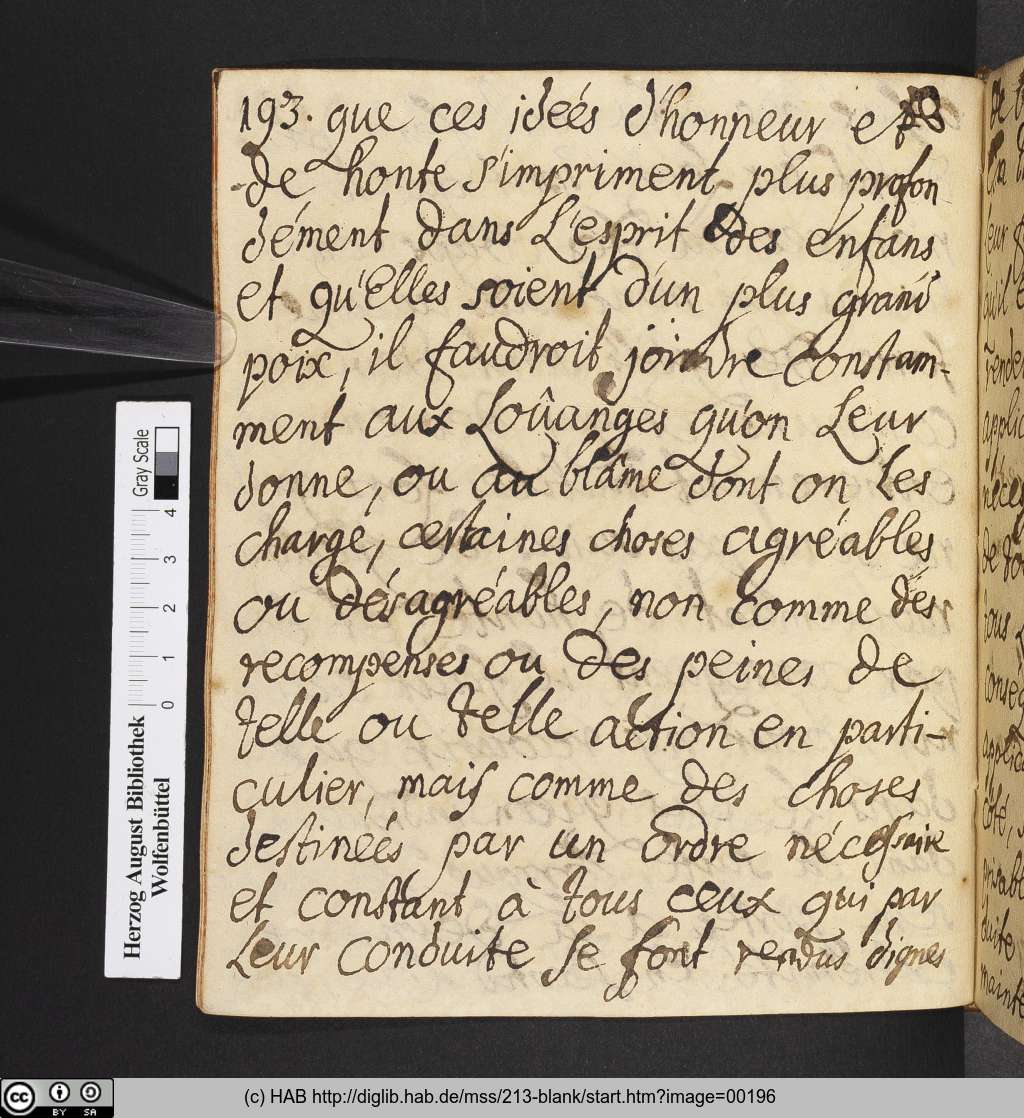 193. que ces ideés d'honneur et
de honte s'impriment plus profon
dément dans L'esprit des enfans
et qu'Elles soient d'un plus grand
poix, il faudroit joindre constam-
ment aux Loûanges qu'on Leur
donne, ou au blâme dont on Les
charge, certaines choses agréables
ou désagréables, non comme dés
recompenses ou des peines de
telle ou telle action en parti-
culier, mais comme des choses
destineés par un ordre nécessaire
et constant à tous ceux qui par
Leur conduite se font rendus dignes
Gray Scale
0 1 2 3 4
Herzog August Bibliothek
Wolfenbüttel
cc BY SA
(c) HAB http://diglib.hab.de/mss/213-blank/start.htm?image=00196